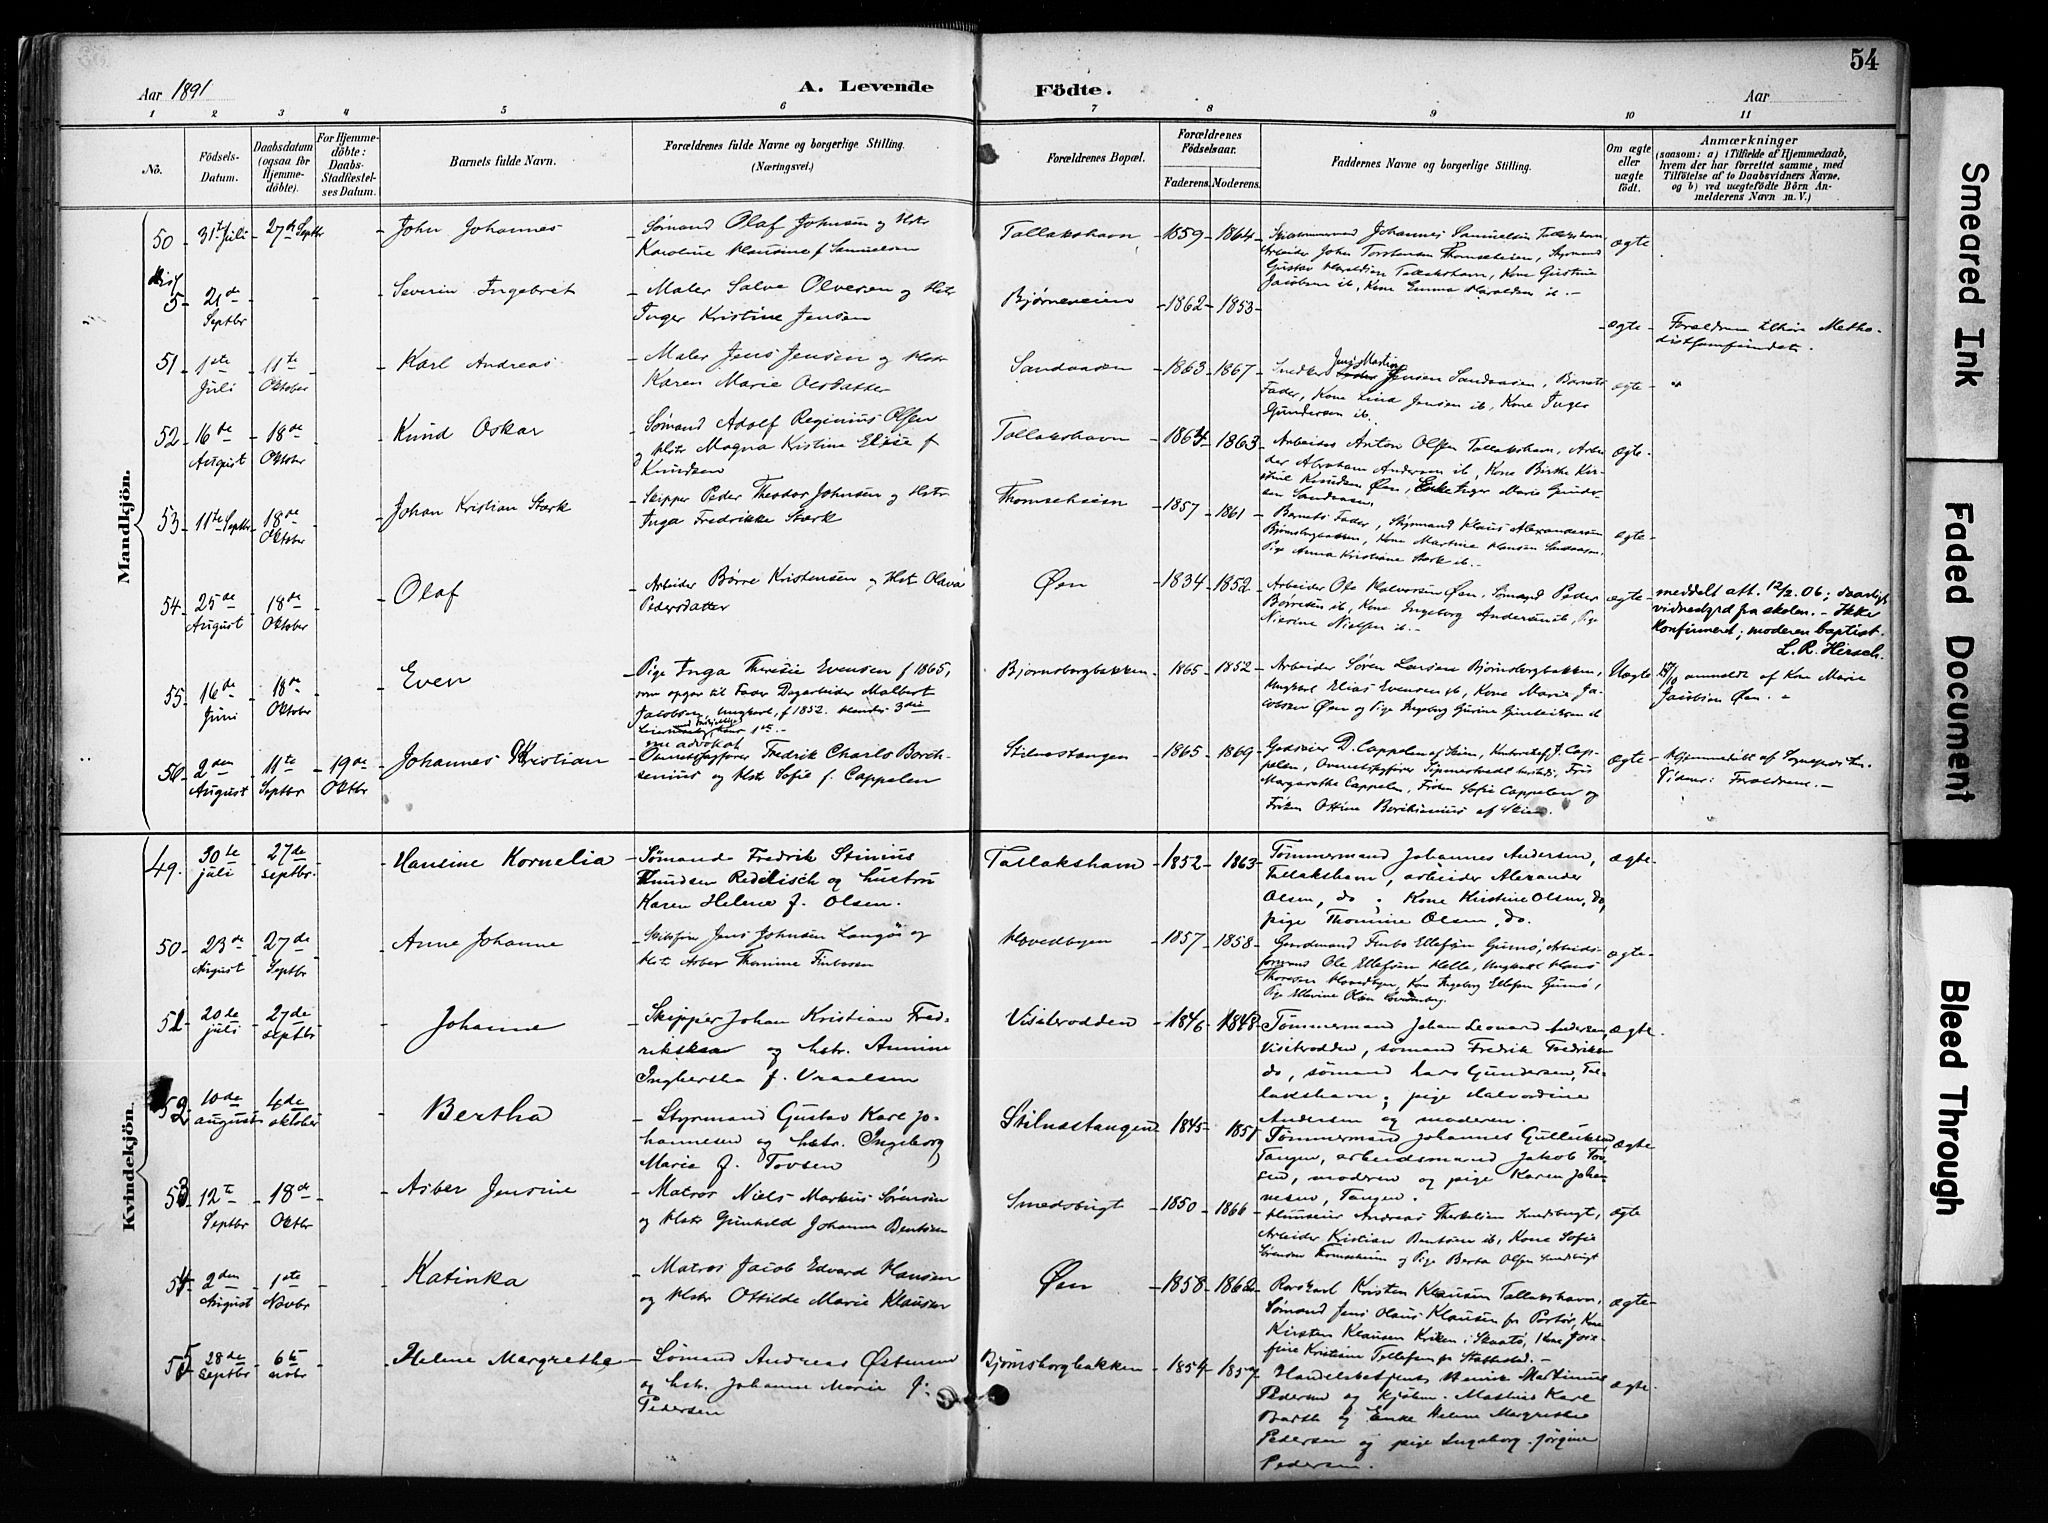 54
Aar 1891
A. Levende
Födte.
Aar
1 2 3 4 5 6 7 8 9 10 11
No.
Födsels-Datum.
Daabsdatum (ogsaa for Hjemme-döbte).
For Hjemme-döbte: Daabs-Stadfæstel-ses Datum.
Barnets fulde Navn.
Forældrenes fulde Navne og borgerlige Stilling.
(Næringsvei.)
Forældrenes Bopæl.
Forældrenes Födselsaar.
Faderens. Moderens.
Faddernes Navne og borgerlige Stilling.
Om ægte eller uægte födt.
Anmærkninger
(saasom: a) i Tilfælde af Hjemmedaab,
hvem der har forrettet samme, med
Tilföielse af to Daabsvidners Navne,
og b) ved uægtefödte Börn An-
melderens Navn m. V.)
Mandkjön.
50 31te Juli 27de Septbr
John Johannes
Sømand Olaf Johnsen og Hstr
Karoline Klausine f Samuelsen
Tallakshavn 1859 1864
Johannes Samuelsen
Arbeider John Torstensen Thomsekleien, Styrmand
Gustav Haraldsen Tallakshavn, Kone Gustine
Jacobsen ib, Kone Emma Haraldsen ib.
ægte
5 21de Septbr
Severin Ingebret
Maler Salve Olversen og Hstr
Inger Kristine Jensen
Bjørneveien 1862 1853
ægte
Forældrene tilhør Metho-
distsamfundet.
51 1ste Juli 11te Oktober
Karl Andreas
Maler Jens Jensen og Hstr
Karen Marie Olsdatter
Sandaasen 1863 1867
Snedker Jens Martin Jensen Sandaasen, Barnets
Fader, Kone Lina Jensen ib, Kone Inger
Gundersen ib.
ægte
52 16de August 18de Oktober
Knud Oskar
Sømand Adolf Reginius Olsen
og Hstr Magna Kristine Elise f
Knudsen
Tallakshavn 1864 1863
Arbeider Anton Olsen Tallakshavn, Arbei-
der Abraham Andersen ib, Kone Birthe Kir-
stine Knudsen Øen, Enke Inger Marie Gunder-
sen Sandaasen.
ægte
53 11te Septbr 18de Oktober
Johan Kristian Stærk
Skipper Peder Theodor Johnsen og Hstr
Inga Fredrikke Stærk
1857 1861
Barnets Fader, Styrmand Klaus Alexandersen
Bjørnsborgbakken, Kone Martine Hansen Sandaasen,
Pige Anna Kristiane Stærk ib.
ægte
54 25de August 18de Oktober
Olaf
Arbeider Børre Kristensen og Hst Olava
Pedersdatter
Øen 1834 1852
Arbeider Ole Halvorsen Øen, Sømand Peder
Børresen ib, Kone Ingeborg Andersen ib, Pige
Nielsen ib.
ægte
meddelt att. 12/2 06; daarligt
vidnesbyrd fra skolen. - Ikke
konfirmeret; moderen baptist.
L. R. Hirsch.
55 16de Juni 18de Oktober
Even
Pige Inga Theresie Evensen f 1865,
som opgav til Fader Dagarbeider Malbert
Jacobsen, Ungkarl, f 1852. Hendes 3die
1ste
Bjørnsborgbakken 1865 1852
Arbeider Søren Larsen Bjørnsborgbakken,
Ungkarl Elias Evensen ib, Kone Marie Ja-
cobsen Øen og Pige Ingeborg Gurine ib
Uægte
anmeldt af Kone Marie
Jacobsen Øen.
56 2den August 11te Septbr 19de Oktbr
Johannes Kristian
Fredrik Charls Borch-
senius og Hstr Sofie f. Cappelen
Stilnestangen 1865 1869
Godseier D. Cappelen af Skien, J. Cap-
pelen,
Margarethe Cappelen, Frøken Sofie Cappelen og
Frøken Ottine Borchsenius af Skien.
ægte
Hjemmedøbt af
Vidner: Forældrene.
Kvindekjön.
49. 30te juli 27de septbr.
Hansine Kornelia
Sømand Fredrik Stinius
Knudsen Reddisch og hustru
Karen Helene f. Olsen.
Tallakshavn 1852 1863
Tømmermand Johannes Andersen,
Tallakshavn, arbeider Alexander
Olsen, do, Kone Kirstine Olsen, do,
pige Thomine Olsen, do.
ægte
50 23de August 27de Septbr
Anne Johanne
Jens Johnsen Langøi og
Hst Asber Thomine
Hovedbyen 1857 1858
Ellefsen Gumø, Arbeids-
formand Ole Ellefsen Helle, Ungkarl Hans
Thoresen Hovedbyen, Kone Ingeborg Ellefsen Gumø,
Pige Ellevine Olsen
ægte
51 20de juli 27de septbr
Johanne
Skipper Johan Kristian Fred-
riksen og hstr. Annine
Ingbertha f. Vraalsen
Visiterodden 1846 1848
Tømmermand Johan Leonard Andersen,
Visiterodden, sømand Fredrik Fredriksen
do, sømand Lars Gundersen, Tal-
lakshavn, pige Halvordine
Andersen og moderen.
ægte
52 10de august 4de oktober
Bertha
Styrmand Gustav Karl Jo-
hannesen og hstr. Ingeborg
Marie f. Tovsen
Stilnestangen 1845 1851
Tømmermand Johannes Gulliksen,
Tangen, arbeidsmand Jakob Tov-
sen, moderen og pige Karen Johan-
nesen, Tangen.
ægte
53 12te Septbr 18de Oktbr
Asber Jensine
Matros Niels Markus Sørensen
og Hstr Gunhild Johanne Bentsen
Smedsbugt 1850 1866
Huuseier Andreas Therkelsen Smedsbugt,
Arbeider Kristian Bentsen ib, Kone Sofie
Sørensen og Pige Berta Olsen Smedsbugt
ægte
54 2den August 1ste Novbr
Katinka
Matros Jacob Edvard Hansen
og Hstr Ottilde Marie Klausen
Øen 1858 1862
Kristen Klausen Tallakshavn,
Sømand Jens Olaus Klausen fra Portør, Kone
Kirsten Klausen Kirken i Skaatø, Kone Jose-
fine Kristine Tellefsen fra Stabbestad.
ægte
55 28de septbr 6te nobr
Helene Margrethe
Sømand Andreas Østensen
og hstr. Johanne Marie f.
Pedersen
Bjørnsborgbakken 1854 1857
Handelsbetjent Henrik Martinius
Pedersen og kjøbm. Mathias Karl
Barth og Enke Helene Margrethe
Pedersen og pige Ingeborg Jørgine
Pedersen.
ægte
Smeared Ink
Faded Document
Bleed Through